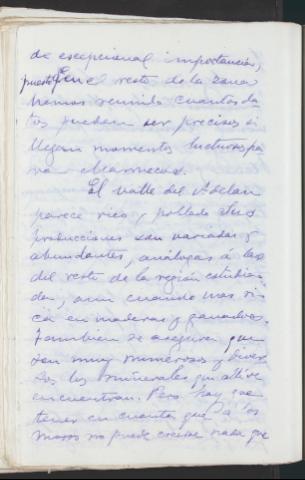 de excepcional importancia,
puesto q. en el resto de la zona
hemos reunido cuantos da
tos puedan ser precisos si
llegan momentos luctuosos pa
ra Marruecos.
El valle del Adelan
parece rico y poblado. Sus
producciones son variadas y
abundantes, análogas á las
del resto de la región estudia
da, aun cuando mas ri
ca en maderas y ganados.
Tambien se asegura que
son muy numerosos y diver
sos los minerales que allí se
encuentran. Pero hay que
tener en cuenta que á los
moros no puede creerse nada que